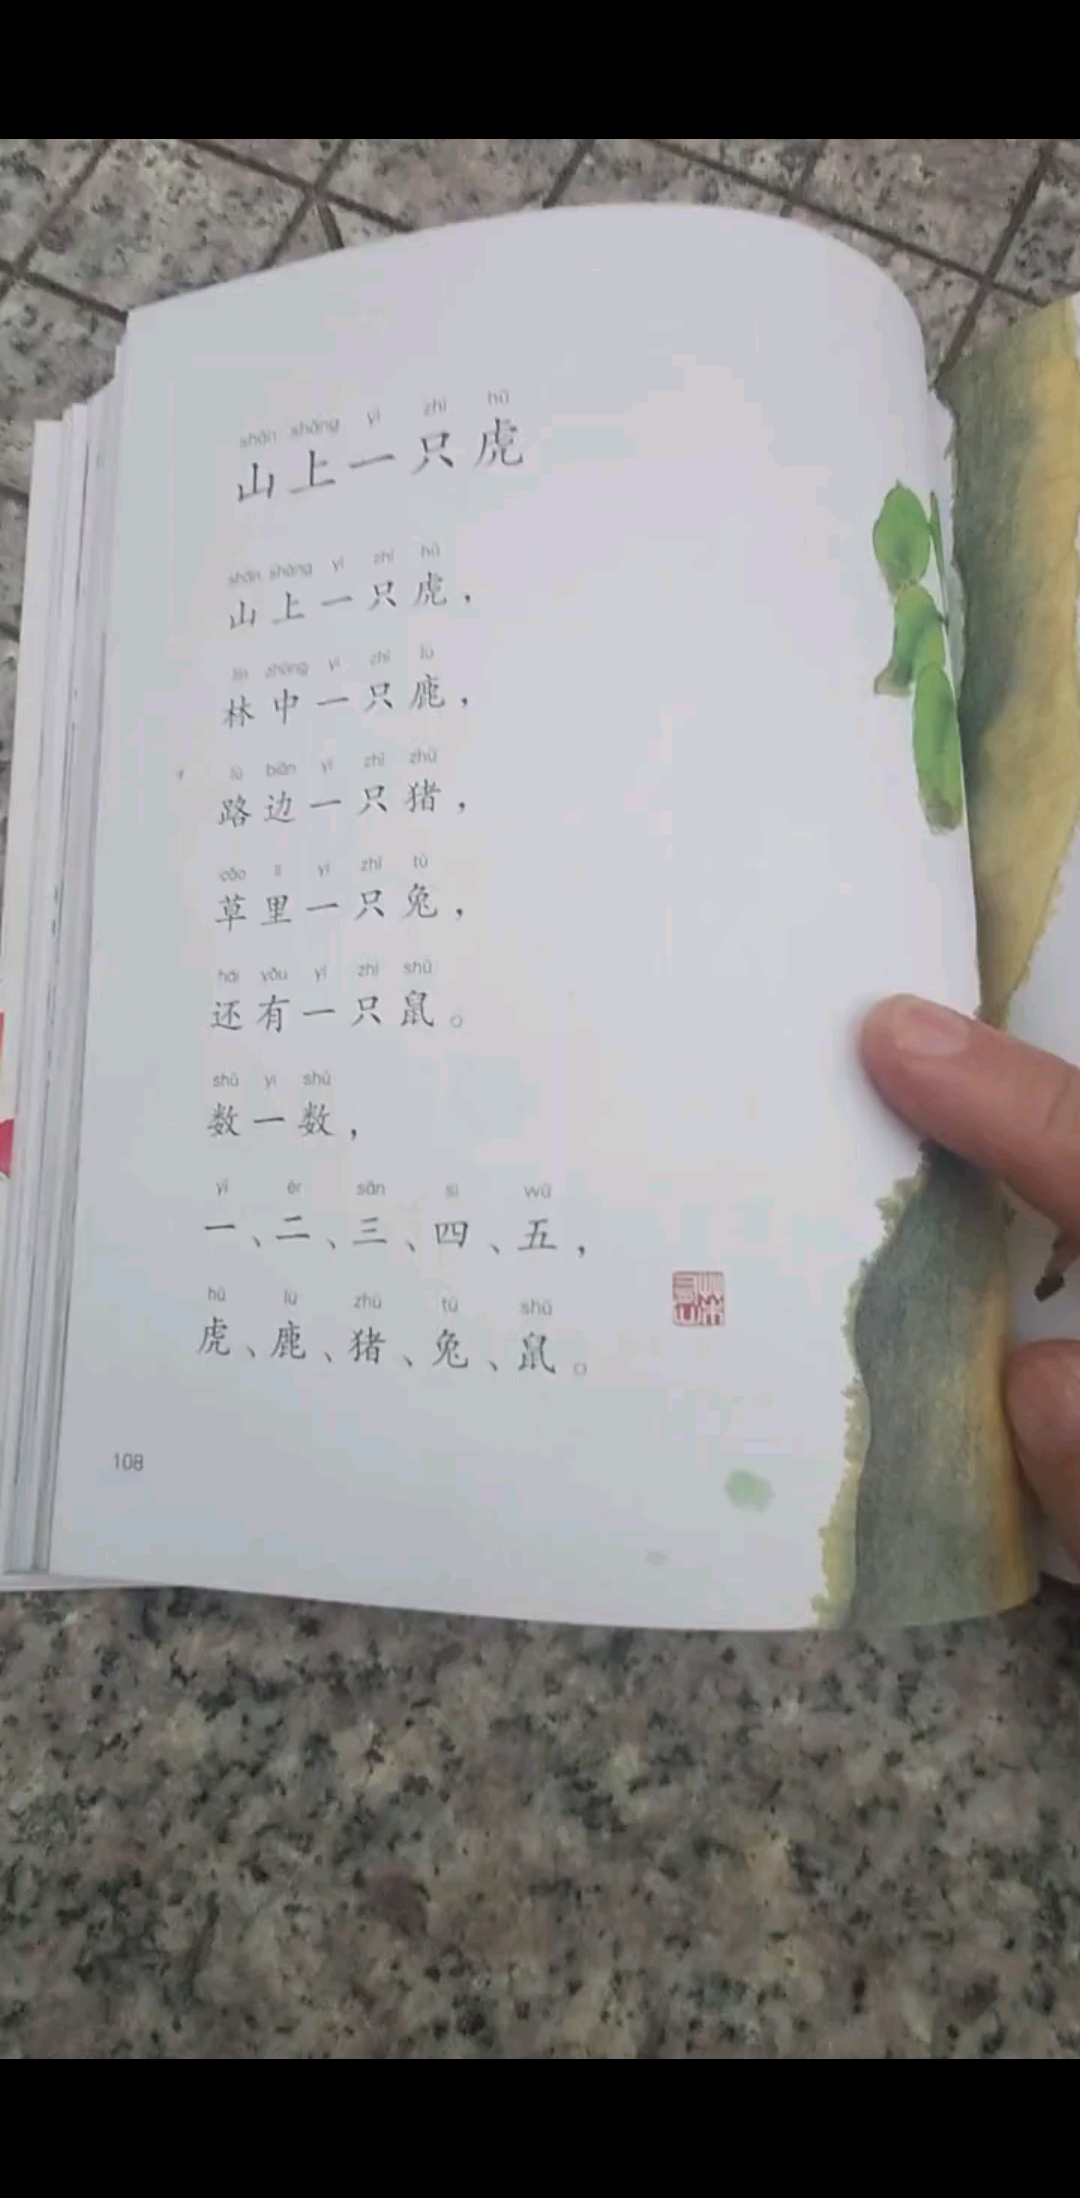 shān shàng yì zhī hǔ
山上一只虎
shān shàng yì zhī hǔ
山上一只虎，
lín zhōng yì zhī lù
林中一只鹿，
lù biān yì zhī zhū
路边一只猪，
cǎo lǐ yì zhī tù
草里一只兔，
hái yǒu yì zhī shǔ
还有一只鼠。
shǔ yi shǔ
数一数，
yī èr sān sì wǔ
一、二、三、四、五，
hǔ lù zhū tù shǔ
虎、鹿、猪、兔、鼠。
108